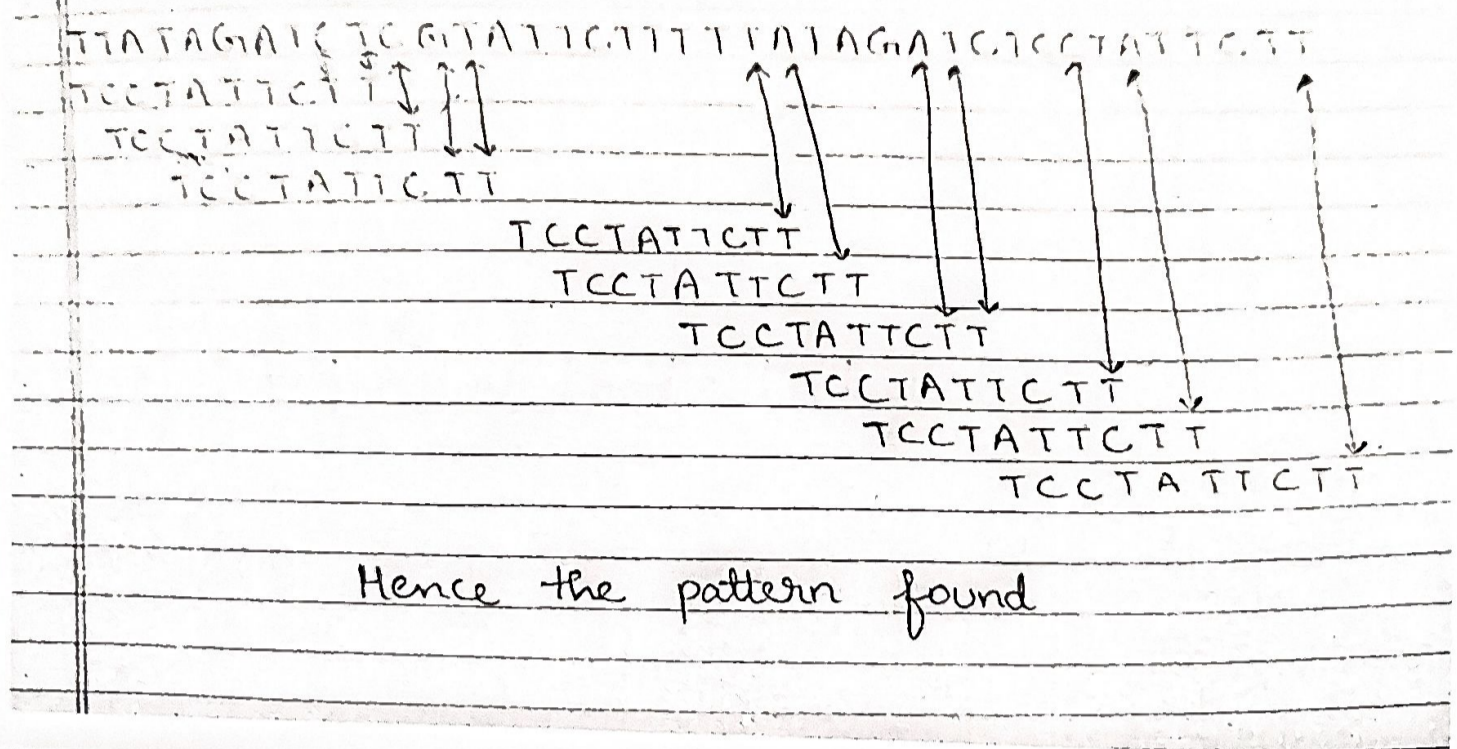 TTATAGATCTCGTATTCTTTTTATAGATCTCCTATTCTT
TCCTATTCTT
TCCTATTCTT
TCCTATTCTT
TCCTATTCTT
TCCTATTCTT
TCCTATTCTT
TCCTATTCTT
TCCTATTCTT
TCCTATTCTT
Hence the pattern found